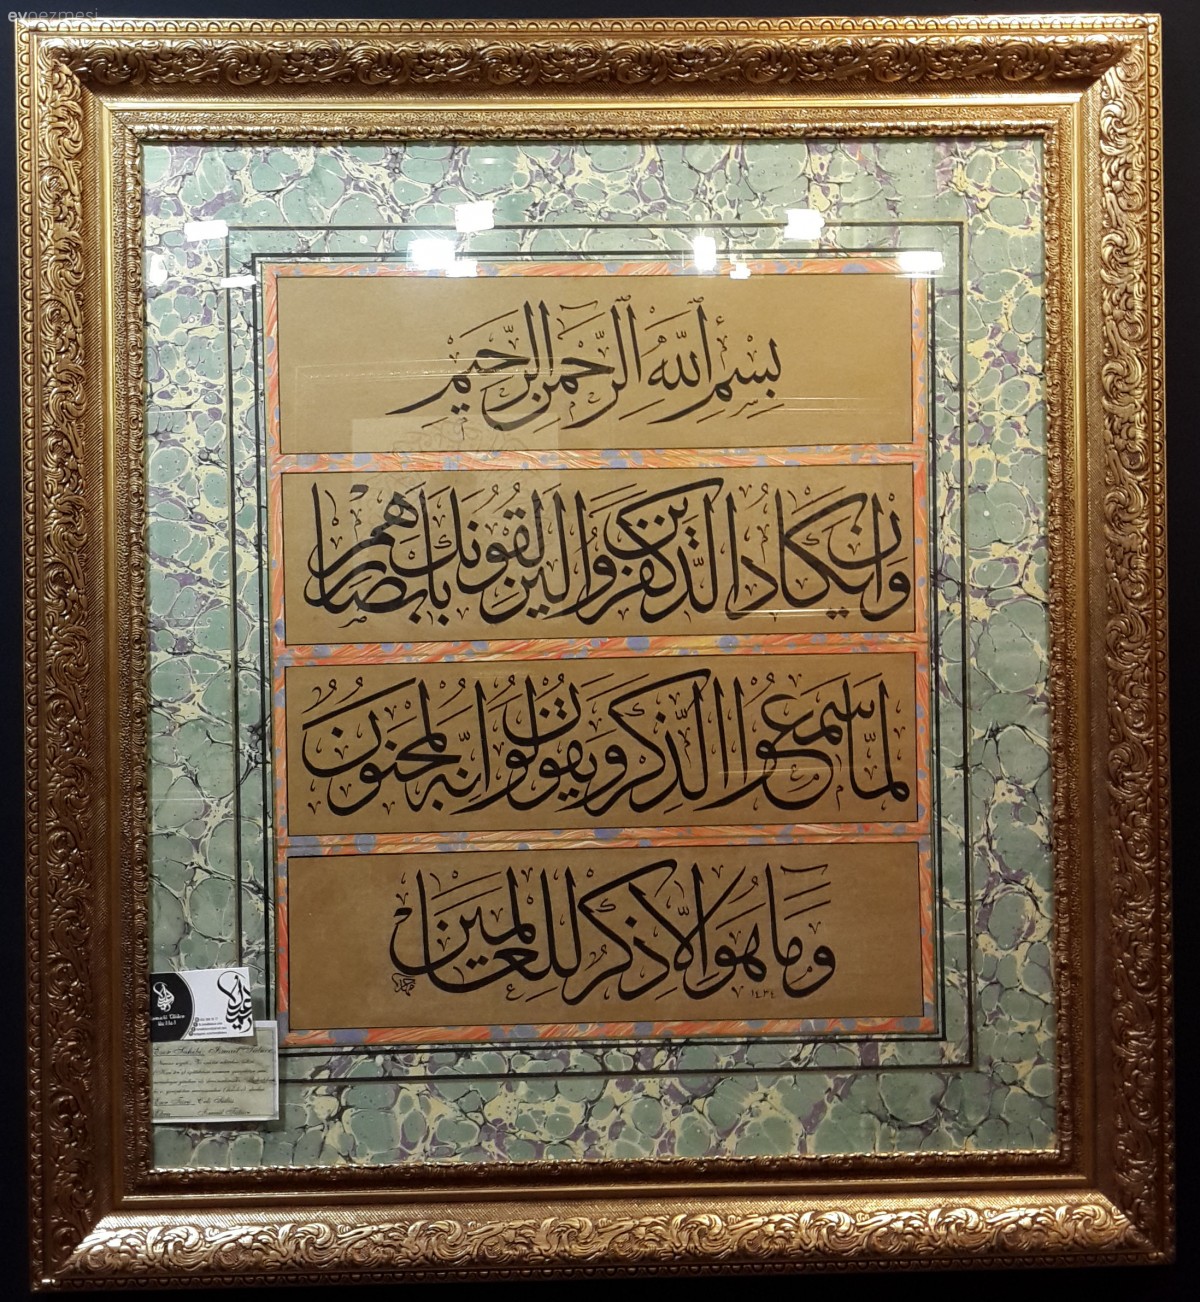 evgezmesi
بِسْمِ اللّٰهِ الرَّحْمٰنِ الرَّحِيمِ
وَاِنْ يَكَادُ الَّذِينَ كَفَرُوا لَيُزْلِقُونَكَ بِاَبْصَارِهِمْ
لَمَّا سَمِعُوا الذِّكْرَ وَيَقُولُونَ اِنَّهُ لَمَجْنُونٌ
وَمَا هُوَ اِلَّا ذِكْرٌ لِلْعَالَمِينَ
١٤٣٤